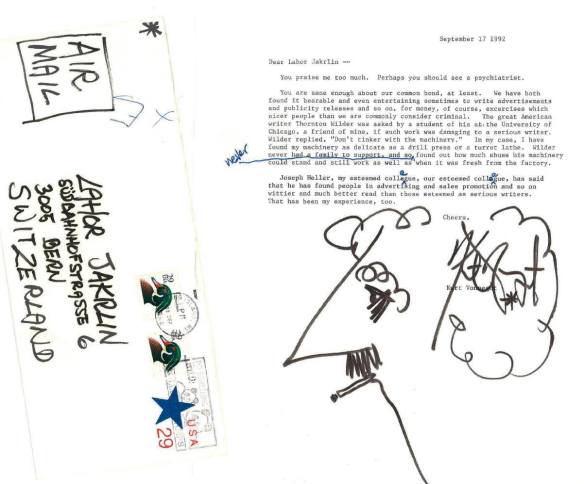 AIR
MAIL
LAHOR JAKRLIN
SÜDBAHNHOFSTRASSE 6
3005 BERN
SWITZERLAND
USA
29
September 17 1992
Dear Lahor Jakrlin --
You praise me too much. Perhaps you should see a psychiatrist.
You are sane enough about our common bond, at least. We have both
found it bearable and even entertaining sometimes to write advertisements
and publicity releases and so on, for money, of course, excercises which
nicer people than we are commonly consider criminal. The great American
writer Thornton Wilder was asked by a student of his at the University of
Chicago, a friend of mine, if such work was damaging to a serious writer.
Wilder replied, "Don't tinker with the machinery." In my case, I have
found my machinery as delicate as a drill press or a turret lathe. Wilder
never
never had a family to support, and so found out how much abuse his machinery
could stand and still work as well as when it was fresh from the factory.
Joseph Heller, my esteemed collegue, our esteemed collegue, has said
that he has found people in advertising and sales promotion and so on
wittier and much better read than those esteemed as serious writers.
That has been my experience, too.
Cheers,
Kurt Vonnegut